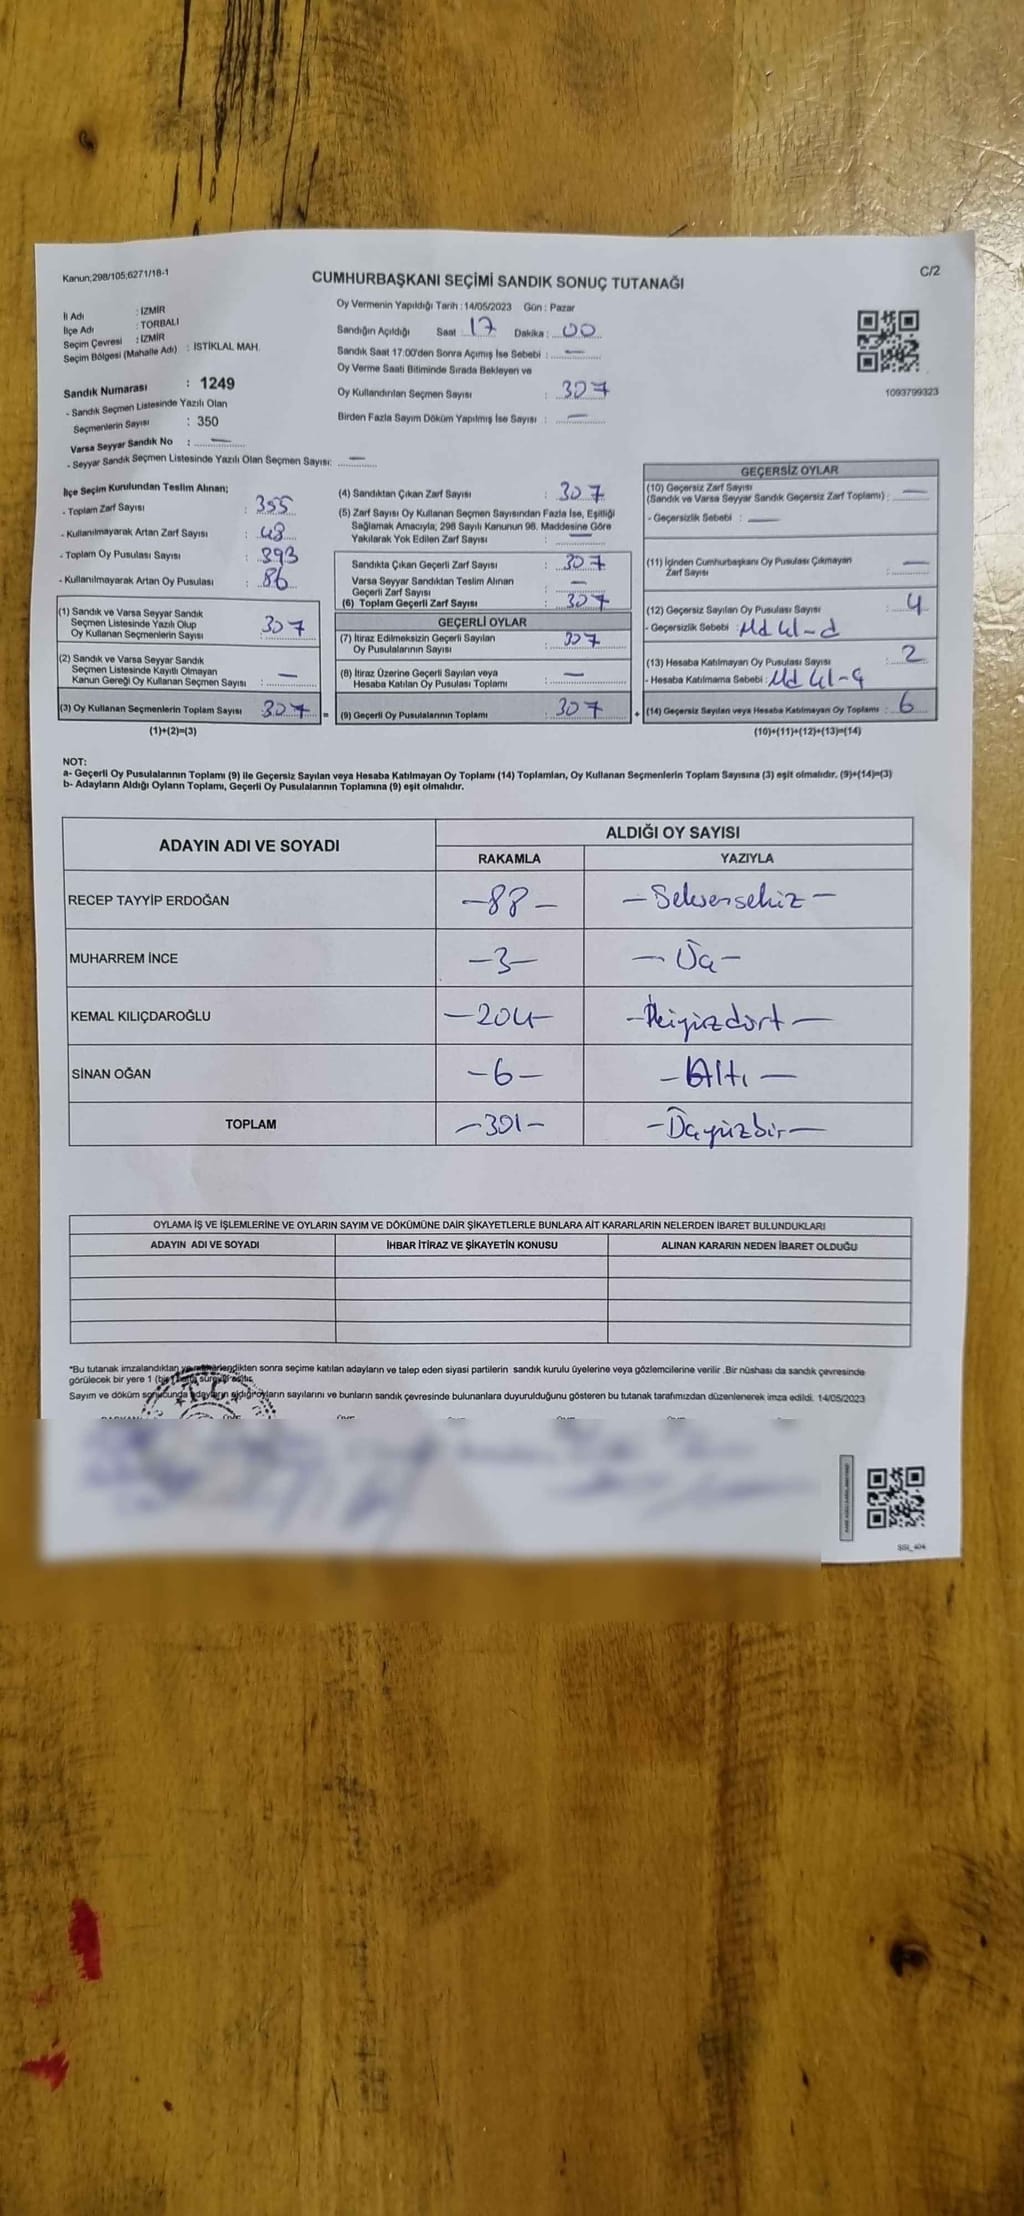 Kanun;298/105;6271/18-1
CUMHURBAŞKANI SEÇİMİ SANDIK SONUÇ TUTANAĞI
C/2
İl Adı : İZMİR
İlçe Adı : TORBALI
Seçim Çevresi : İZMİR
Seçim Bölgesi (Mahalle Adı) : İSTİKLAL MAH.
Sandık Numarası : 1249
- Sandık Seçmen Listesinde Yazılı Olan
Seçmenlerin Sayısı : 350
Varsa Seyyar Sandık No : —
- Seyyar Sandık Seçmen Listesinde Yazılı Olan Seçmen Sayısı: —
Oy Vermenin Yapıldığı Tarih : 14/05/2023 Gün : Pazar
Sandığın Açıldığı Saat : 17 Dakika : 00
Sandık Saat 17:00'den Sonra Açımış İse Sebebi : —
Oy Verme Saati Bitiminde Sırada Bekleyen ve
Oy Kullandırılan Seçmen Sayısı : 307
Birden Fazla Sayım Döküm Yapılmış İse Sayısı : —
1093799323
İlçe Seçim Kurulundan Teslim Alınan;
- Toplam Zarf Sayısı : 355
- Kullanılmayarak Artan Zarf Sayısı : 48
- Toplam Oy Pusulası Sayısı : 393
- Kullanılmayarak Artan Oy Pusulası : 86
(1) Sandık ve Varsa Seyyar Sandık
Seçmen Listesinde Yazılı Olup
Oy Kullanan Seçmenlerin Sayısı 307
(2) Sandık ve Varsa Seyyar Sandık
Seçmen Listesinde Kayıtlı Olmayan
Kanun Gereği Oy Kullanan Seçmen Sayısı : —
(3) Oy Kullanan Seçmenlerin Toplam Sayısı 307 =
(1)+(2)=(3)
(4) Sandıktan Çıkan Zarf Sayısı : 307
(5) Zarf Sayısı Oy Kullanan Seçmen Sayısından Fazla İse, Eşitliği
Sağlamak Amacıyla, 298 Sayılı Kanunun 98. Maddesine Göre
Yakılarak Yok Edilen Zarf Sayısı : —
Sandıkta Çıkan Geçerli Zarf Sayısı : 307
Varsa Seyyar Sandıktan Teslim Alınan
Geçerli Zarf Sayısı : —
(6) Toplam Geçerli Zarf Sayısı : 307
GEÇERLİ OYLAR
(7) İtiraz Edilmeksizin Geçerli Sayılan
Oy Pusulalarının Sayısı : 307
(8) İtiraz Üzerine Geçerli Sayılan veya
Hesaba Katılan Oy Pusulası Toplamı : —
(9) Geçerli Oy Pusulalarının Toplamı : 307 +
GEÇERSİZ OYLAR
(10) Geçersiz Zarf Sayısı
(Sandık ve Varsa Seyyar Sandık Geçersiz Zarf Toplamı) : —
- Geçersizlik Sebebi : —
(11) İçinden Cumhurbaşkanı Oy Pusulası Çıkmayan
Zarf Sayısı : —
(12) Geçersiz Sayılan Oy Pusulası Sayısı : 4
- Geçersizlik Sebebi : Md 41-d
(13) Hesaba Katılmayan Oy Pusulası Sayısı : 2
- Hesaba Katılmama Sebebi : Md 41-g
(14) Geçersiz Sayılan veya Hesaba Katılmayan Oy Toplamı : 6
(10)+(11)+(12)+(13)=(14)
NOT:
a- Geçerli Oy Pusulalarının Toplamı (9) ile Geçersiz Sayılan veya Hesaba Katılmayan Oy Toplamı (14) Toplamları, Oy Kullanan Seçmenlerin Toplam Sayısına (3) eşit olmalıdır. (9)+(14)=(3)
b- Adayların Aldığı Oyların Toplamı, Geçerli Oy Pusulalarının Toplamına (9) eşit olmalıdır.
ADAYIN ADI VE SOYADI
ALDIĞI OY SAYISI
RAKAMLA YAZIYLA
RECEP TAYYİP ERDOĞAN -88- -Seksensekiz-
MUHARREM İNCE -3- -Üç-
KEMAL KILIÇDAROĞLU -204- -İkiyüzdört-
SİNAN OĞAN -6- -Altı-
TOPLAM -301- -Üçyüzbir-
OYLAMA İŞ VE İŞLEMLERİNE VE OYLARIN SAYIM VE DÖKÜMÜNE DAİR ŞİKAYETLERLE BUNLARA AİT KARARLARIN NELERDEN İBARET BULUNDUKLARI
ADAYIN ADI VE SOYADI İHBAR İTİRAZ VE ŞİKAYETİN KONUSU ALINAN KARARIN NEDEN İBARET OLDUĞU
*Bu tutanak imzalandıktan ve mühürlendikten sonra seçime katılan adayların ve talep eden siyasi partilerin sandık kurulu üyelerine veya gözlemcilerine verilir .Bir nüshası da sandık çevresinde
görülecek bir yere 1 (bir) hafta süreyle asılır.
Sayım ve döküm sonucunda adayların aldığı oyların sayılarını ve bunların sandık çevresinde bulunanlara duyurulduğunu gösteren bu tutanak tarafımızdan düzenlenerek imza edildi. 14/05/2023